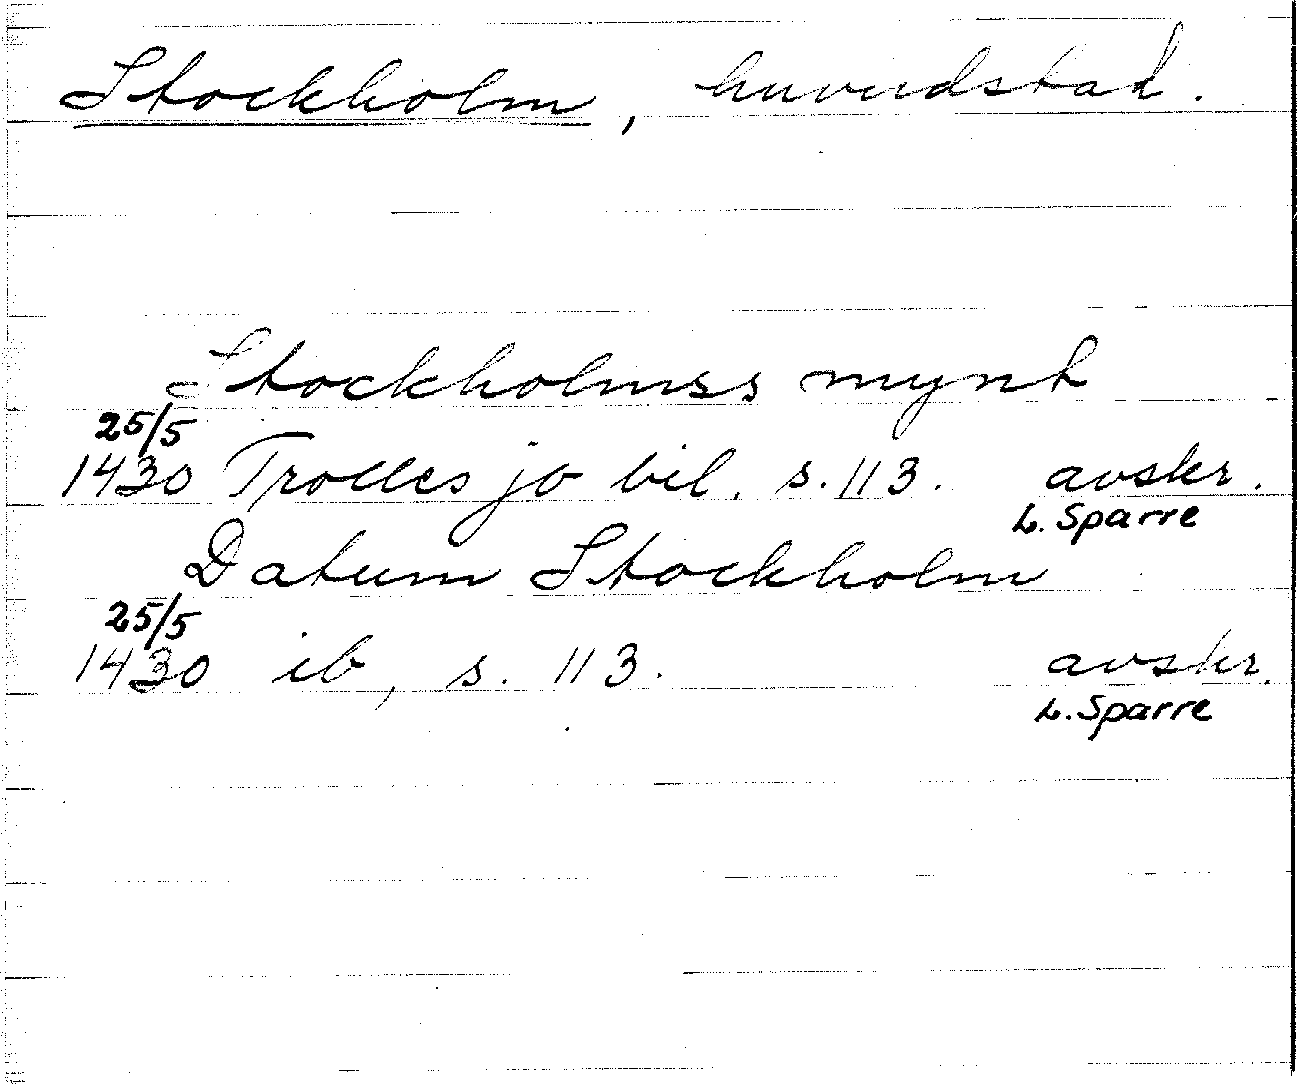 Stockholm, huvudstad.
Stockholmss mynt
25/5
1430 Trolles jo bil. s. 113. avskr.
L. Sparre
Datum Stockholm
25/5
1430 ib, s. 113. avskr.
L. Sparre